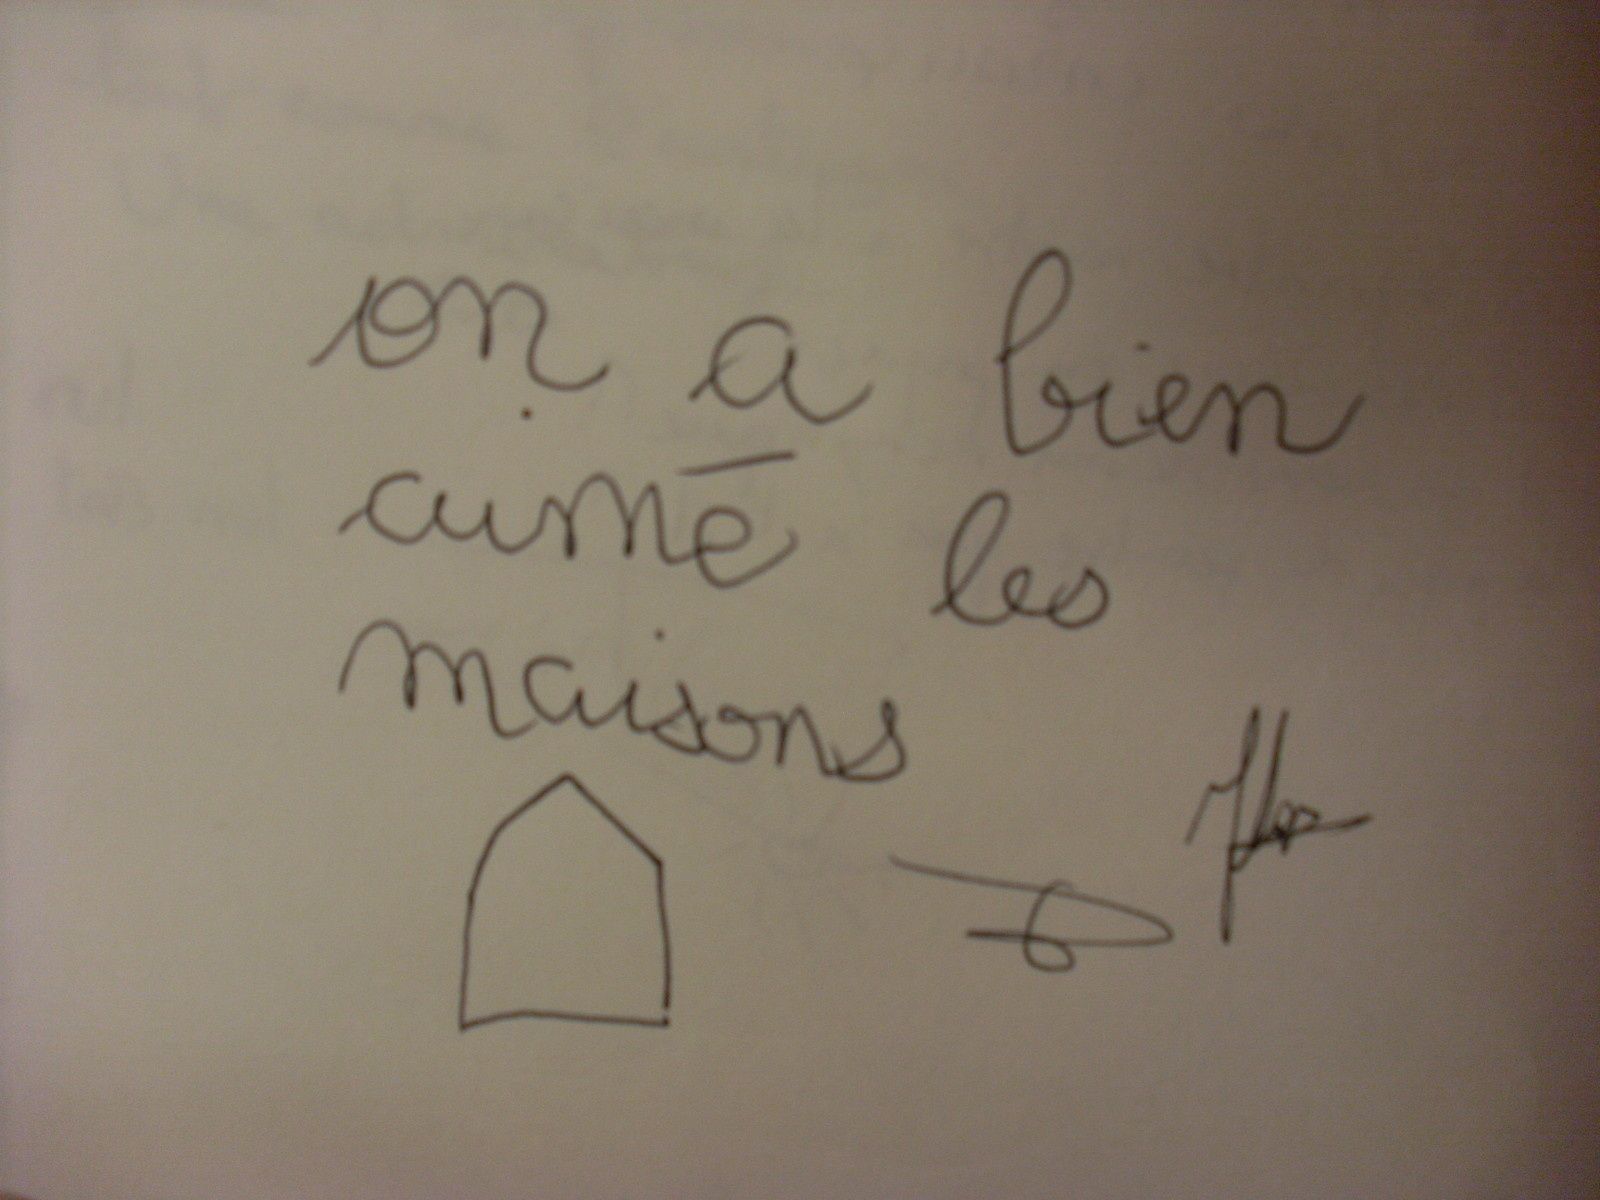 on a bien
aimé les
maisons